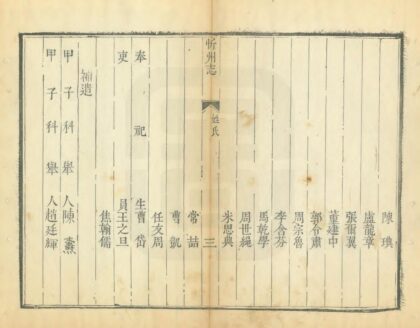 陳璵
盧龍章
張爾翼
董建中
郭令肅
周宗魯
李含芬
馬乾學
周世繩
朱思典
忻州志
姓氏
三
常喆
曹凱
任友周
奉祀生曹岱
吏員王之旦
焦翰儒
補遺
甲子科舉人陳燾
甲子科舉人趙廷輝